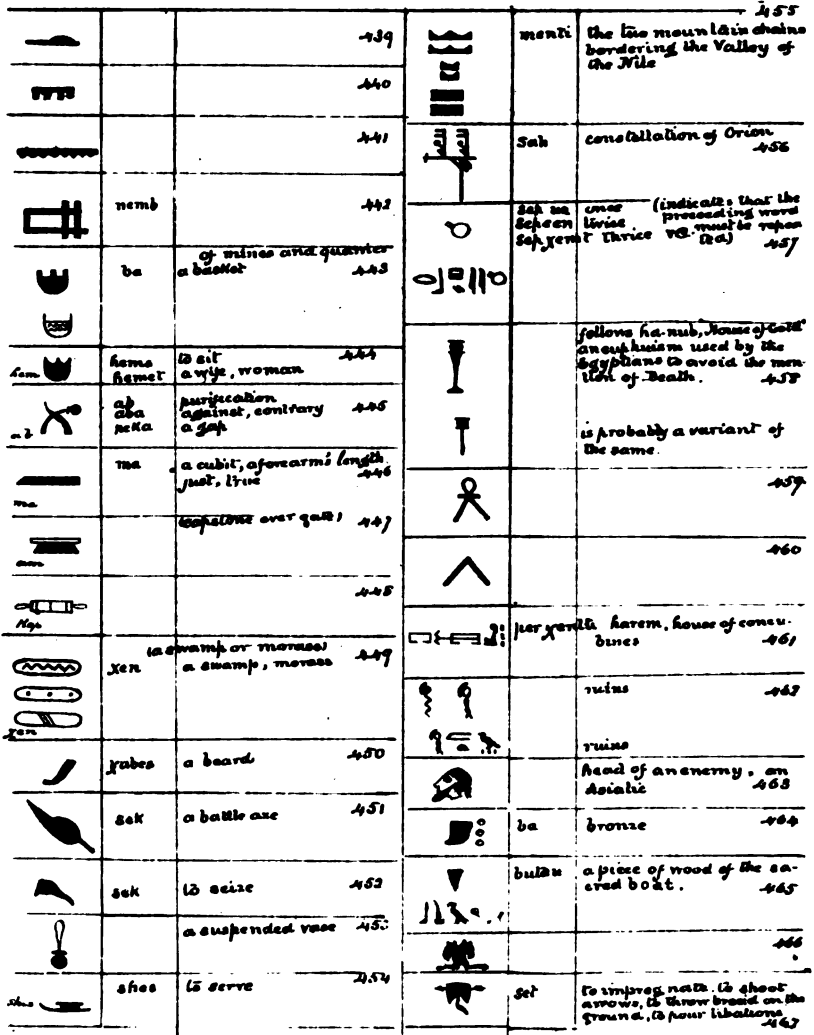 439
440
441
nemb 442
of mines and quarries
ba a basket 443
hem hems to sit 444
hemet a wife, woman
ab purification
ab aba against, contrary 445
peka a gap
ma a cubit, a forearm's length
just, true 446
ma
(capstone over gate) 447
am
448
(a swamp or morass)
xen a swamp, morass 449
xen
xabes a beard 450
sek a battle axe 451
sek to seize 452
a suspended vase 453
shes shes to serve 454
455
menti the two mountain chains
bordering the Valley of
the Nile
Sah constellation of Orion
456
once (indicates that the
twice preceeding word
thrice must be repea
ted) 457
follows ha-nub, "House of Gold"
an euphuism used by the
Egyptians to avoid the men-
tion of Death. 458
is probably a variant of
the same.
459
460
per xenti harem, house of concu-
bines 461
ruins 462
ruins
head of an enemy, an
Asiatic 463
ba bronze 464
butau a piece of wood of the sa-
cred boat. 465
466
set to impregnate. to shoot
arrows, to throw bread on the
ground, to pour libations
467